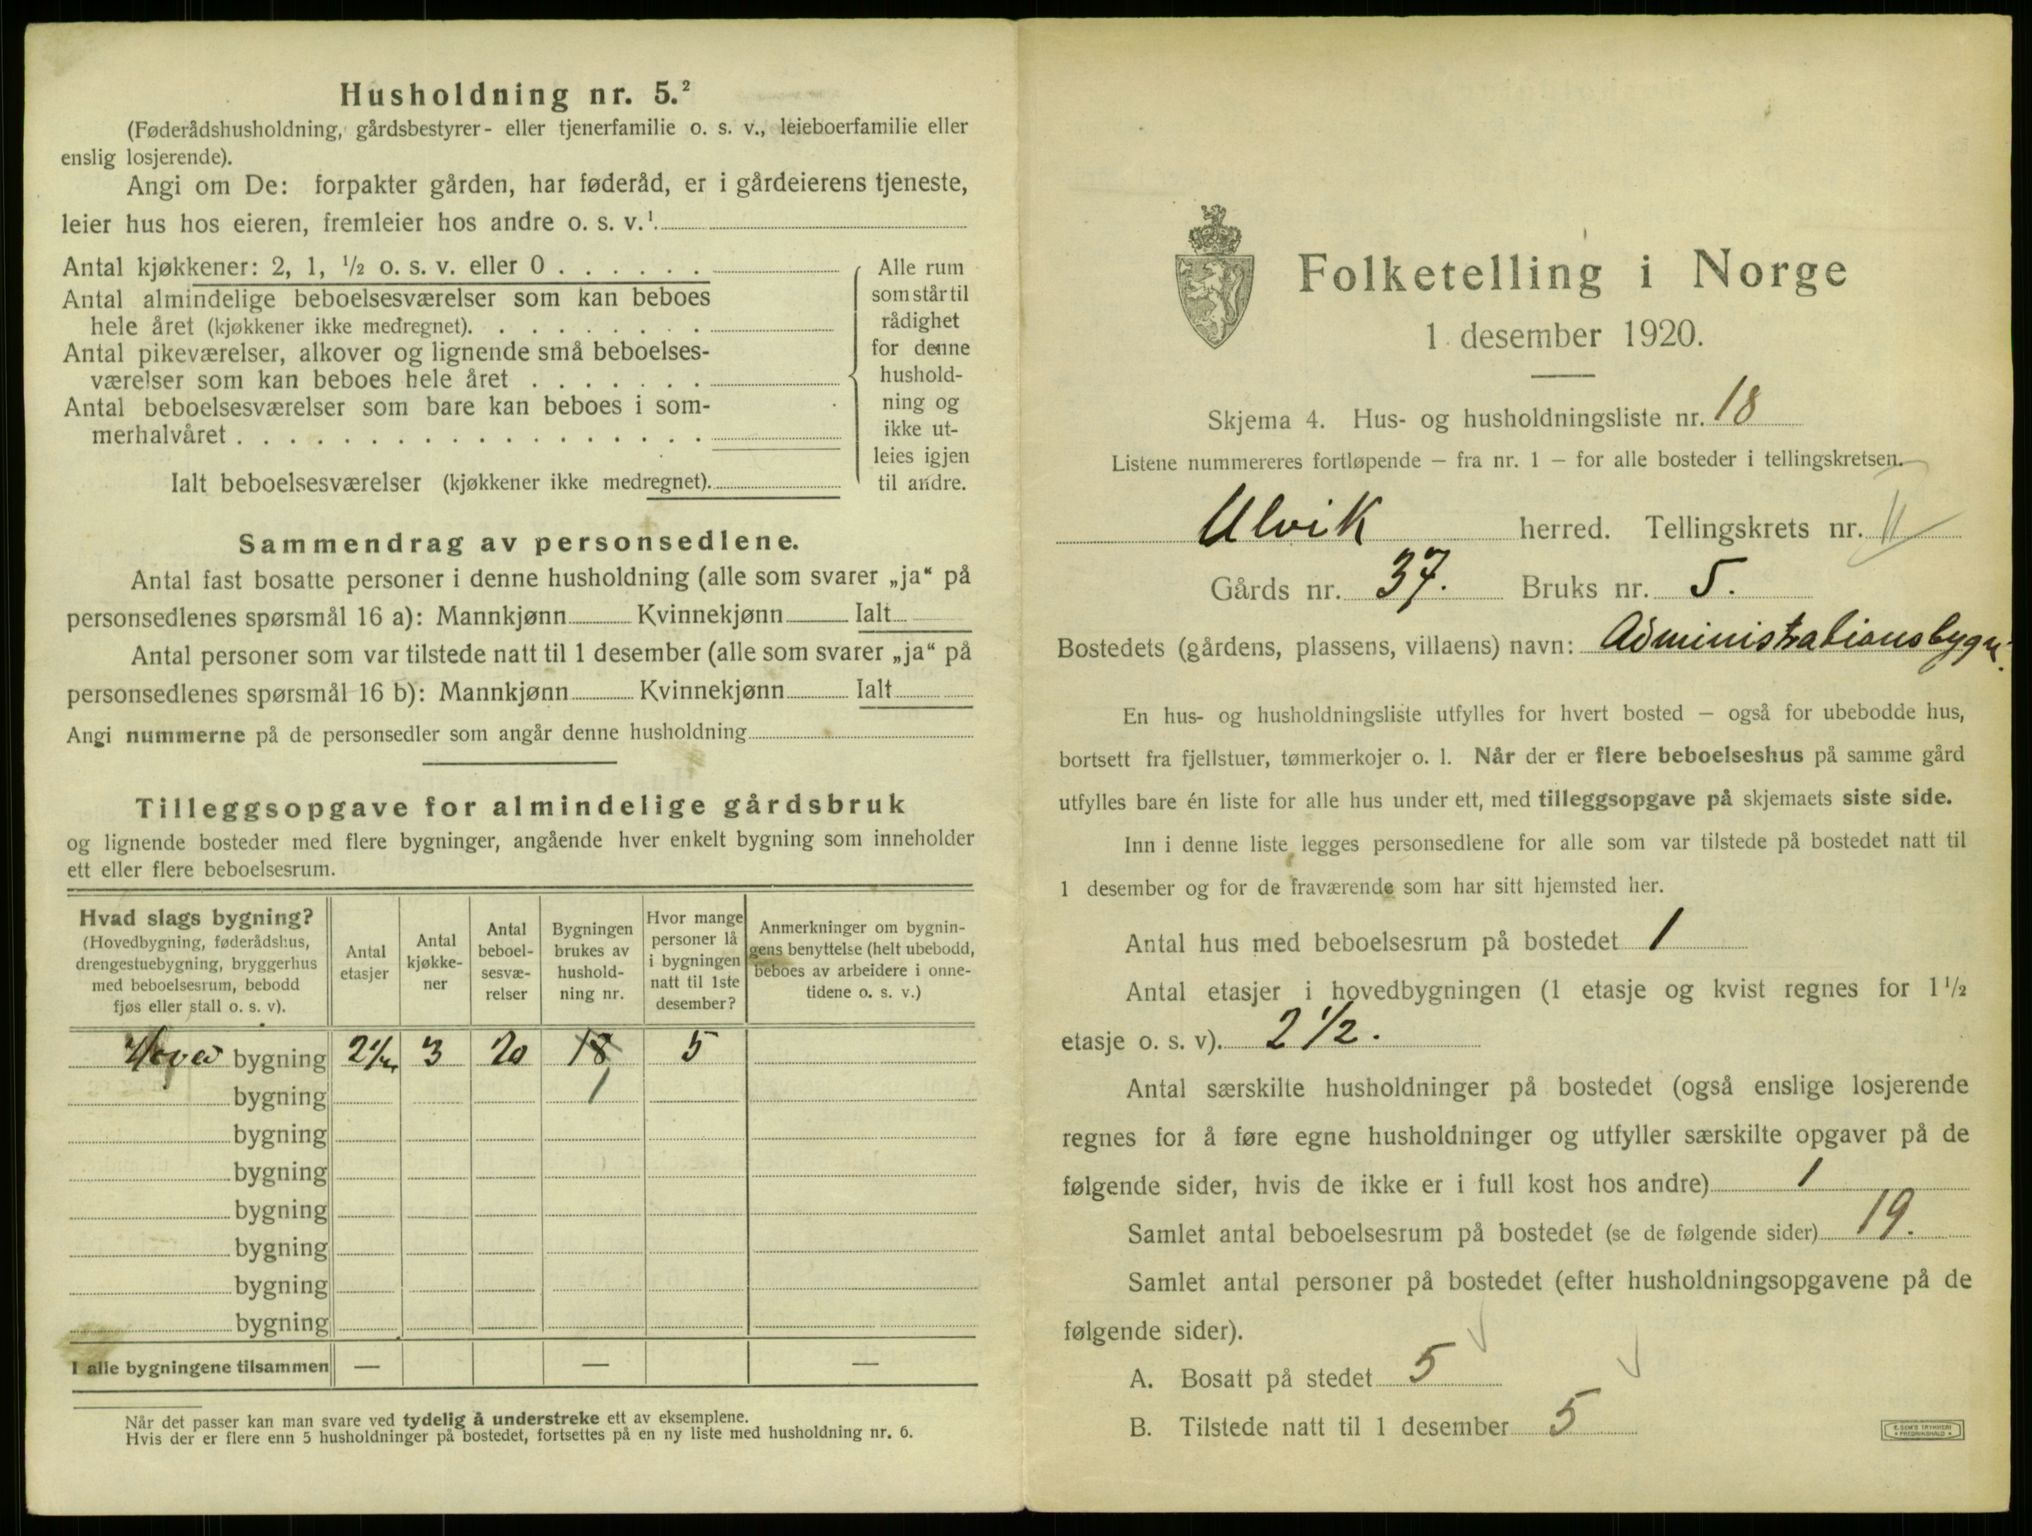 Husholdning nr. 5.²
(Føderådshusholdning, gårdsbestyrer- eller tjenerfamilie o. s. v., leieboerfamilie eller
enslig losjerende).
Angi om De: forpakter gården, har føderåd, er i gårdeierens tjeneste,
leier hus hos eieren, fremleier hos andre o. s. v.¹
Antal kjøkkener: 2, 1, ½ o. s. v. eller 0 . . . . . .
Antal almindelige beboelsesværelser som kan beboes
hele året (kjøkkener ikke medregnet). . . . . . . .
Antal pikeværelser, alkover og lignende små beboelses-
værelser som kan beboes hele året . . . . . . .
Antal beboelsesværelser som bare kan beboes i som-
merhalvåret . . . . . . . . . . . . . . . . . .
Ialt beboelsesværelser (kjøkkener ikke medregnet).
Alle rum
som står til
rådighet
for denne
hushold-
ning og
ikke ut-
leies igjen
til andre.
Sammendrag av personsedlene.
Antal fast bosatte personer i denne husholdning (alle som svarer „ja“ på
personsedlenes spørsmål 16 a): Mannkjønn Kvinnekjønn Ialt
Antal personer som var tilstede natt til 1 desember (alle som svarer „ja“ på
personsedlenes spørsmål 16 b): Mannkjønn Kvinnekjønn Ialt
Angi nummerne på de personsedler som angår denne husholdning
Tilleggsopgave for almindelige gårdsbruk
og lignende bosteder med flere bygninger, angående hver enkelt bygning som inneholder
ett eller flere beboelsesrum.
Hvad slags bygning?
(Hovedbygning, føderådshus,
drengestuebygning, bryggerhus
med beboelsesrum, bebodd
fjøs eller stall o. s. v).
Antal
etasjer
Antal
kjøkke-
ner
Antal
beboel-
sesvæ-
relser
Bygningen
brukes av
hushold-
ning nr.
Hvor mange
personer lå
i bygningen
natt til 1ste
desember?
Anmerkninger om bygnin-
gens benyttelse (helt ubebodd,
beboes av arbeidere i onne-
tidene o. s. v.)
Hoved bygning 2½ 3 20 18 5
bygning 1
bygning
bygning
bygning
bygning
bygning
bygning
I alle bygningene tilsammen — — —
Når det passer kan man svare ved tydelig å understreke ett av eksemplene.
Hvis der er flere enn 5 husholdninger på bostedet, fortsettes på en ny liste med husholdning nr. 6.
Folketelling i Norge
1 desember 1920.
Skjema 4. Hus- og husholdningsliste nr. 18
Listene nummereres fortløpende — fra nr. 1 — for alle bosteder i tellingskretsen.
Ulvik herred. Tellingskrets nr. 11
Gårds nr. 37. Bruks nr. 5.
Bostedets (gårdens, plassens, villaens) navn: Administrationsbygn.
En hus- og husholdningsliste utfylles for hvert bosted — også for ubebodde hus,
bortsett fra fjellstuer, tømmerkojer o. l. Når der er flere beboelseshus på samme gård
utfylles bare én liste for alle hus under ett, med tilleggsopgave på skjemaets siste side.
Inn i denne liste legges personsedlene for alle som var tilstede på bostedet natt til
1 desember og for de fraværende som har sitt hjemsted her.
Antal hus med beboelsesrum på bostedet 1
Antal etasjer i hovedbygningen (1 etasje og kvist regnes for 1½
etasje o. s. v). 2½.
Antal særskilte husholdninger på bostedet (også enslige losjerende
regnes for å føre egne husholdninger og utfyller særskilte opgaver på de
følgende sider, hvis de ikke er i full kost hos andre) 1
Samlet antal beboelsesrum på bostedet (se de følgende sider) 19.
Samlet antal personer på bostedet (efter husholdningsopgavene på de
følgende sider).
A. Bosatt på stedet 5
B. Tilstede natt til 1 desember 5
E. SEM'S TRYKKERI
FREDRIKSHALD